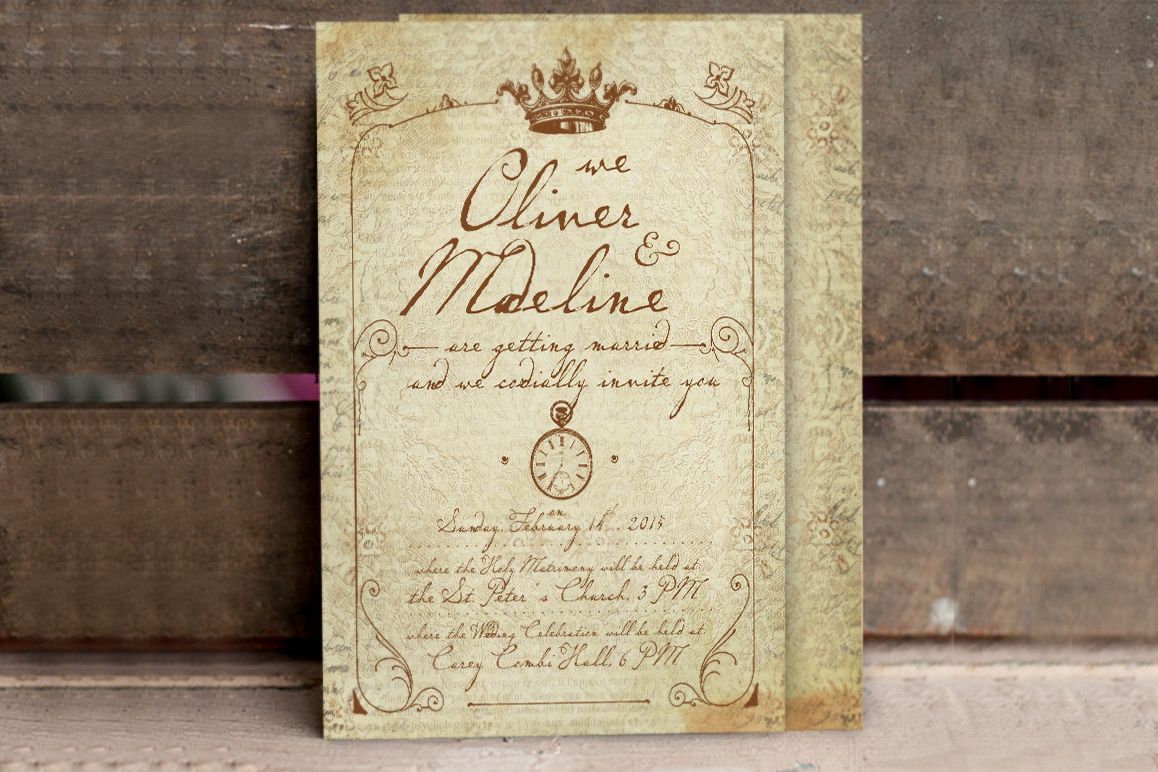 we
Oliver
&
Madeline
are getting married
and we codially invite you
on
Sunday, February 14th . 2015
where the Holy Matrimony will be held at:
the St. Peter's Church, 3 PM
where the Wedding Celebration will be held at:
Carey Combi Hall, 6 PM